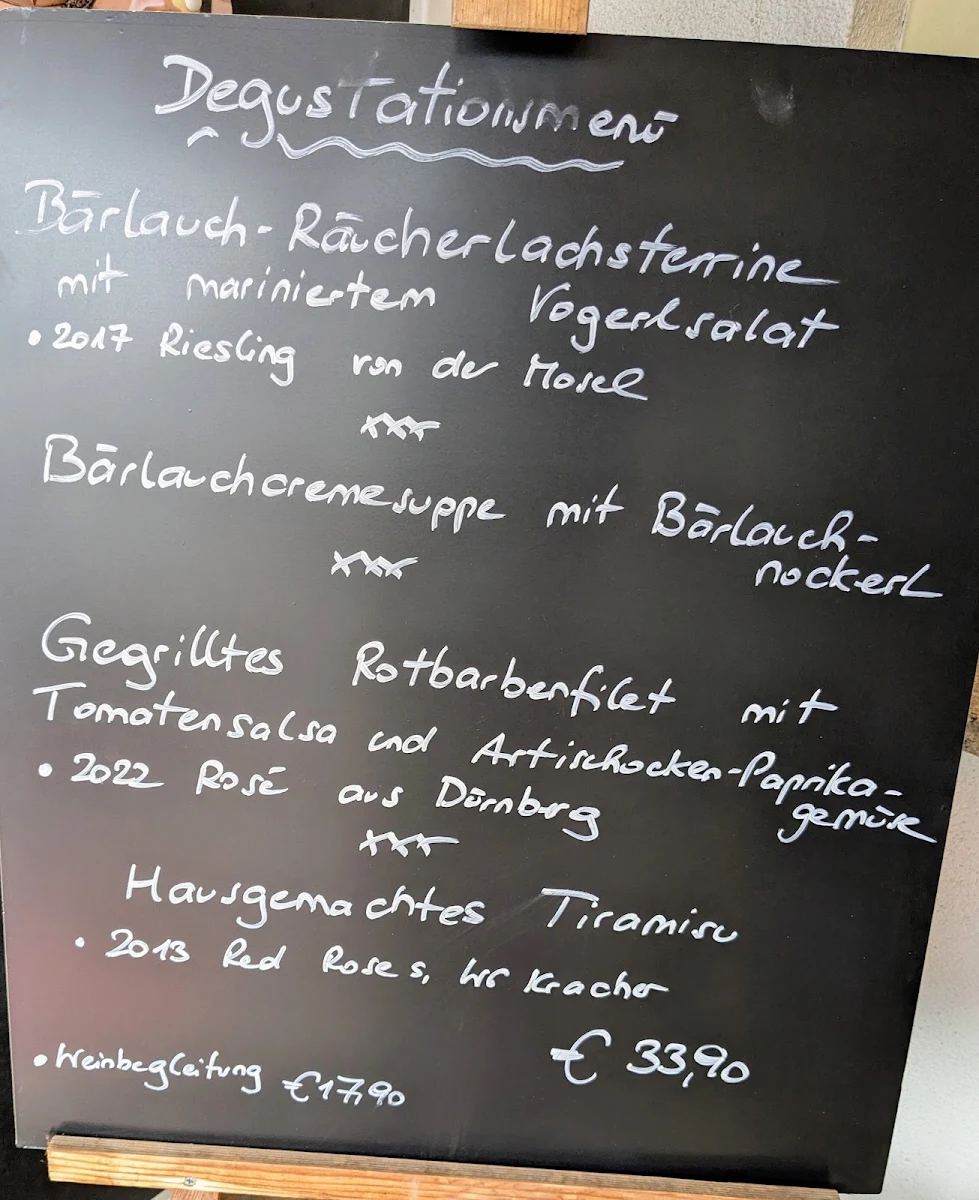 Degustationsmenü
Bärlauch-Räucherlachsterrine
mit mariniertem Vogerlsalat
• 2017 Riesling von der Mosel
xxx
Bärlauchcremesuppe mit Bärlauch-
nockerl
xxx
Gegrilltes Rotbarbenfilet mit
Tomatensalsa und Artischocken-Paprika-
gemüse
• 2022 Rosé aus Dürnberg
xxx
Hausgemachtes Tiramisu
• 2013 Red Roses, WG Kracher
€ 33,90
• Weinbegleitung €17,90